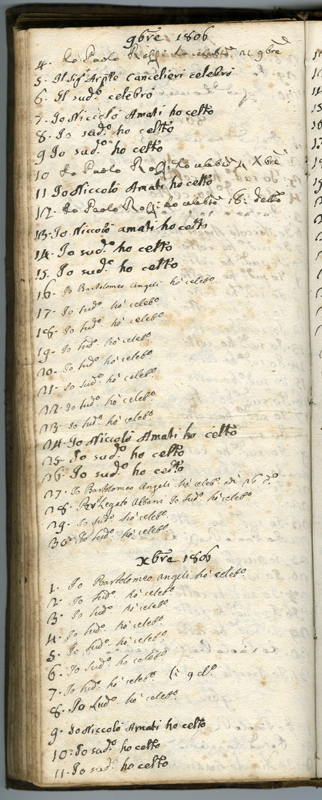 9bre 1806
4. Io Paolo Rossi ho celebto 9bre
5. Il Sigr Arcpte Cancelieri celebrò
6. Il sudo celebrò
7. Io Niccolò Amati ho celto
8. Io sudo ho celto
9 Io sudo ho celto
10 Io Paolo Rossi ho celebto Xbre
11 Io Niccolò Amati ho celto
12. Io Paolo Rossi ho celebto 18: detto
13. Io Niccolò amati ho celto
14. Io sudo ho celto
15. Io sudo ho celto
16. Io Bartolomeo Angeli hò celebo
17. Io sudo hò celebo
18. Io sudo hò celebo
19. Io sudo hò celebo
20. Io sudo hò celebo
21. Io sudo hò celebo
22. Io sudo hò celebo
23. Io sudo hò celebo
24. Io Niccolò Amati ho celto
25. Io sudo ho celto
26. Io sudo ho celto
27. Io Bartolomeo Angeli hò celebo
28. Per Legato Albani Io sudo hò celebo
29. Io sudo hò celebo
30. Io sudo hò celebo
xbre 1806
1. Io Bartolomeo Angeli hò celebo
2. Io sudo hò celebo
3. Io sudo hò celebo
4. Io sudo hò celebo
5. Io sudo hò celebo
6. Io sudo hò celebo
7. Io sudo hò celebo
8. Io sudo hò celebo
9. Io Niccolò Amati ho celto
10: Io sudo ho celto
11. Io sudo ho celto